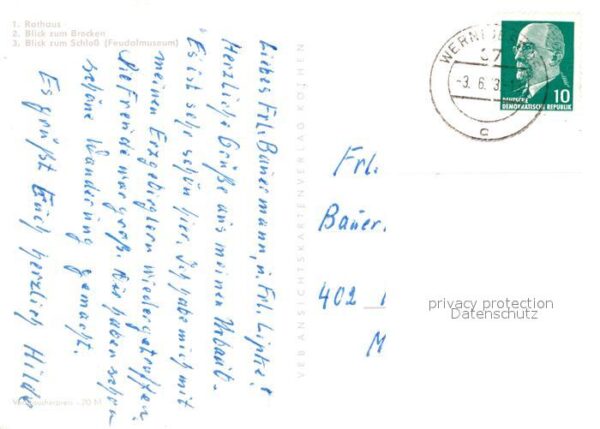 1. Rathaus
2. Blick zum Brocken
3. Blick zum Schloß (Feudalmuseum)
Liebes Frl. Bauermann, u. Frl. Lipke!
Herzliche Grüße aus meinem Urlaub.
Es ist sehr schön hier. Ich habe mich mit
meinen Erzgebirglern wiedergetroffen,
die Freude war groß. Wir haben schon
schöne Wanderung gemacht.
Es grüßt Euch herzlich Hilde
VEB ANSICHTSKARTENVERLAG KÖTHEN
37
-3. 6. 3
c
10
DEMOKRATISCHE REPUBLIK
Frl.
Bauer.
402
M
privacy protection
Datenschutz